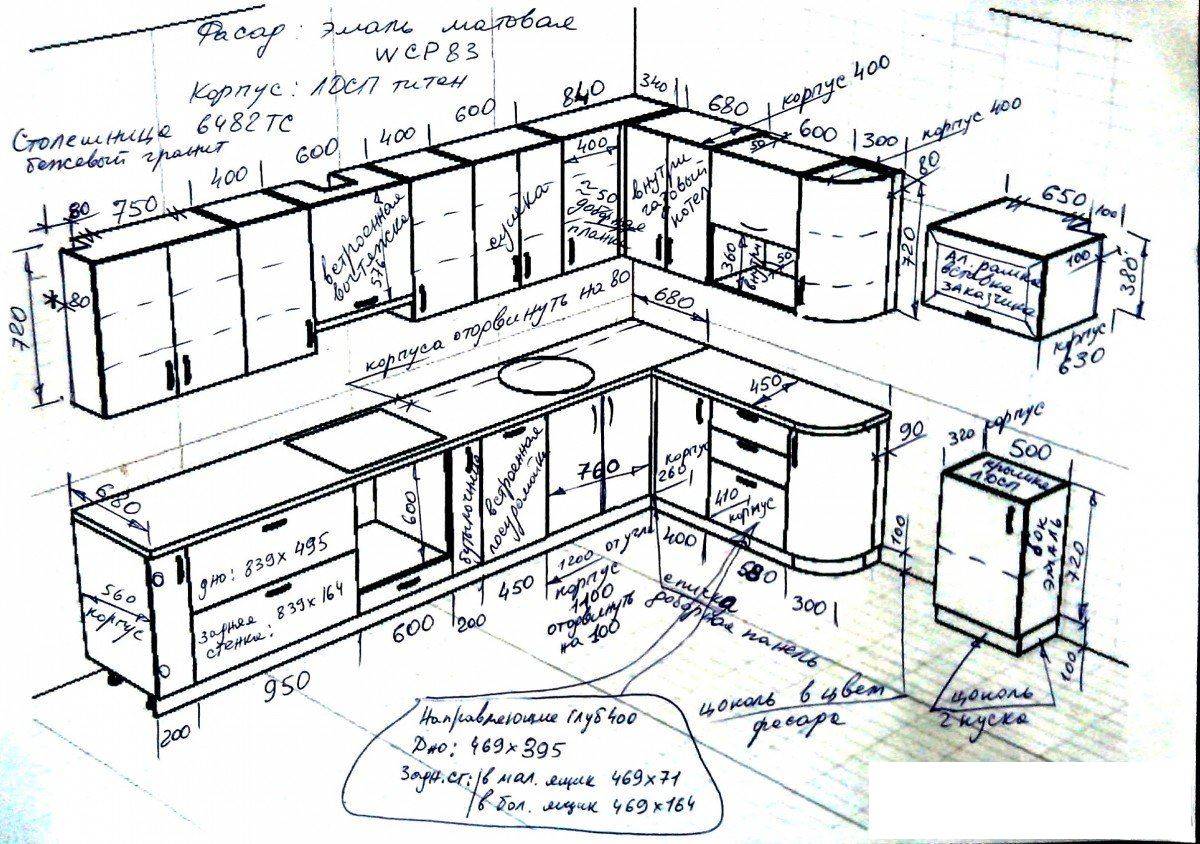 Фасад: эмаль матовая
WCP 83
Корпус: ЛДСП титан
Столешница 6482ТС
бежевый гранит
80
750
400
600
400
600
840
340
680
корпус 400
600
300
корпус 400
80
720
80
встроенная
вытяжка
576
сушка
400
~50
доборная
планка
внутри
газовый
котел
50
360
внутри
50
720
650
100
Ал. рамка
вставка
заказчика
100
380
корпус
630
корпуса отодвинуть на 80
680
680
450
90
560
корпус
дно: 839х495
задняя
стенка: 839х164
600
бутылочница
встроенная
посудомойка
760
корпус
260
410
корпус
400
580
300
100
200
950
600
200
450
1200 от угла
корпус
1100
отодвинуть
на 100
доборная панель
цоколь в цвет
фасада
320
корпус
500
крышка
ЛДСП
бок
эмаль
720
100
цоколь
2 куска
Направляющие глуб 400
Дно: 469х395
Задн.ст: в мал. ящик 469х71
в бол. ящик 469х164